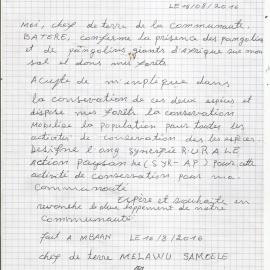 LE 16/08/2016
moi, chef de terre de la communauté
BATERE, confirme la présence des pangolins
et de pangolins géants d'Afrique sur mon
sol et dans mes forêts
Acepte de m'implique dans
la conservation de ces deux espèces et
dispose mes forêts la conservation
mobilise la population pour toutes les
activités de conservation des les espèces.
l'ong synergie RURALE
Action paysanne (SYR-AP) pour cette
activité de conservation pour ma
communauté
Espère et souhaite en
revanche le développement de notre
communauté
fait A MBAAN LE 16/8/2016
chef de terre MELAWU SAMCELE